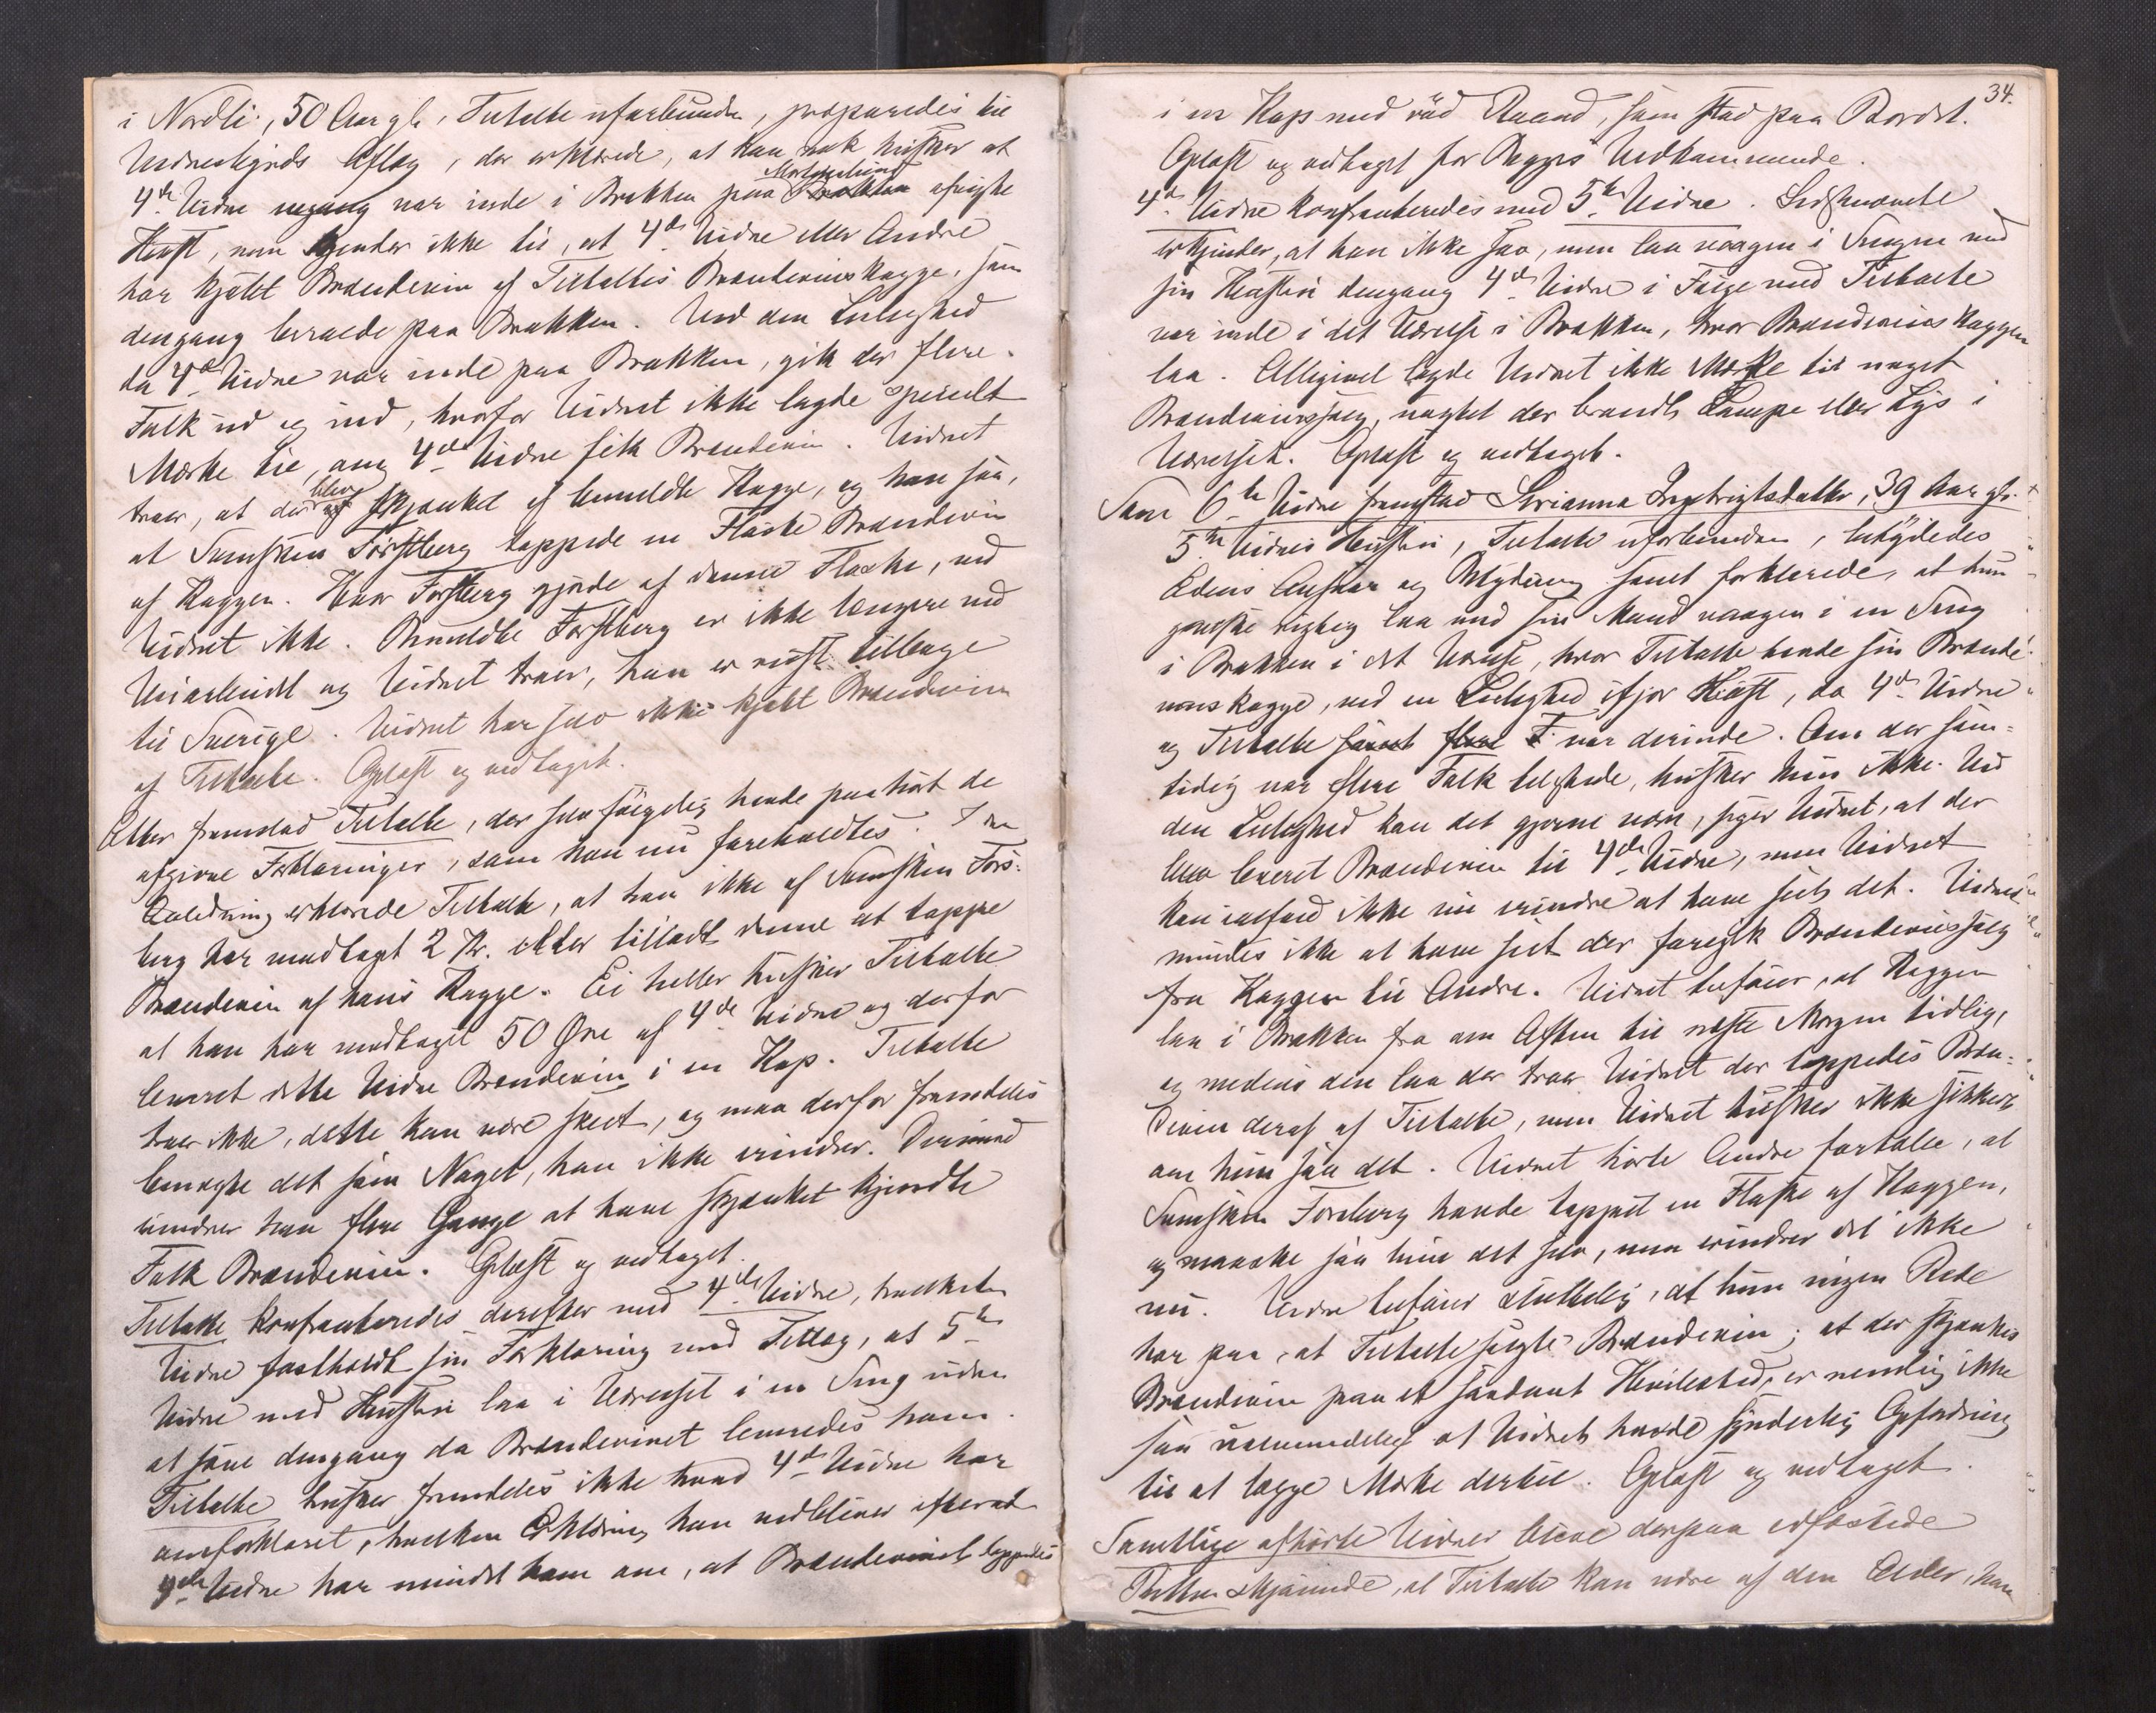 i Nordli, 50 Aar gl., Tiltalte uforbunden, præparedes til
Vidnesbyrds Aflæg, der erklærede, at han nok husker at
4de Vidne engang var inde i Brakken paa afvigte
Høst, men kjender ikke til, at 4de Vidne eller Andre
har kjøbt Brændevin af Tiltaltes Brændevinskagge, som
dengang beroede paa Brakken. Ved den Leilighed
da 4de Vidne var inde paa Brakken, gik der flere
Folk ud og ind, hvorfor Vidnet ikke lagde specielt
Mærke til, om 4de Vidne fik Brændevin. Vidnet
troer, at der blev skjænket af bemeldte Kagge, og han saa,
at Svensken Forstberg tappede en Flaske Brændevin
af Kaggen. Hvor Forstberg gjorde af denne Flaske, ved
Vidnet ikke. Bemeldte Forstberg er ikke længere ved
Veiarbeidet og Vidnet troer, han er reist tilbage
til Sverige. Vidnet har selv ikke kjøbt Brændevin
af Tiltalte. Oplæst og vedtaget.
Atter fremstod Tiltalte, der selvfølgelig havde paahørt de
afgivne Forklaringer, som han nu foreholdtes. I den
Anledning erklærede Tiltalte, at han ikke af Svensken Fors-
berg har modtaget 2 Kr. eller tilladt denne at tappe
Brændevin af hans Kagge. Ei heller husker Tiltalte
at han har modtaget 50 Øre af 4de Vidne og derfor
leveret dette Vidne Brændevin i en Kop. Tiltalte
troer ikke, dette kan være skeet, og maa derfor fremdeles
benegte det som Noget, han ikke erindrer. Derimod
erindrer han flere Gange at have skjænket kjendte
Folk Brændevin. Oplæst og vedtaget.
Tiltalte konfronteredes derefter med 4de Vidne, hvilket
Vidne fastholdt sin Forklaring med Tillæg, at 5te
Vidne med Hustru laa i Værelset i en Seng uden
at sove dengang da Brændevinet leveredes ham.
Tiltalte husker fremdeles ikke hvad 4de Vidne har
omforklaret, hvilken Erklæring han vedbliver efterat
4de Vidne har mindet ham om, at Brændevinet tappedes
34.
i en Kop med rød Rand, som stod paa Bordet.
Oplæst og vedtaget for Begges Vedkommende.
4de Vidne konfronteredes med 5te Vidne. Sidstnævnte
erkjender, at han ikke sov, men laa vaagen i Sengen med
sin Hustru dengang 4de Vidne i Følge med Tiltalte
var inde i det Værelse i Brakken, hvor Brændevinskaggen
laa. Alligevel lagde Vidnet ikke Mærke til noget
Brændevinssalg, uagtet der brændte Lampe eller Lys i
Værelset. Oplæst og vedtaget.
Som 6te Vidne fremstod Serianna Ingebrigtsdatter, 39 Aar gl.
5te Vidnes Hustru, Tiltalte uforbunden, betydedes
Edens Ansvar og Betydning samt forklarede, at hun
ganske rigtig laa med sin Mand vaagen i en Seng
i Brakken i det Værelse, hvor Tiltalte havde sin Brænde-
vinskagge, ved en Leilighed ifjor Høst, da 4de Vidne
og Tiltalte samt flere F var derinde. Om der sam-
tidig var flere Folk tilstede, husker hun ikke. Ved
den Leilighed kan det gjerne være, siger Vidnet, at der
blev leveret Brændevin til 4de Vidne, men Vidnet
kan ialfald ikke nu erindre at have seet det. Vidnet
mindes ikke at have seet der foregik Brændevinssalg
fra Kaggen til Andre. Vidnet tilføier, at Kaggen
laa i Brakken fra om Aften til næste Morgen tidlig,
og medens den laa der troer Vidnet der tappedes Bræn-
devin deraf af Tiltalte, men Vidnet husker ikke sikkert
om hun saa det. Vidnet hørte Andre fortælle, at
Svensken Forsberg havde tappet en Flaske af Kaggen,
og maaske saa hun det selv, men erindrer det ikke
nu. Vidne tilføier sluttelig, at hun ingen Rede
har paa, at Tiltalte solgte Brændevin; at der skjænkes
Brændevin paa et saadant Hvilested, er nemlig ikke
saa ualmindeligt at Vidnet havde synderlig Opfordring
til at lægge Mærke dertil. Oplæst og vedtaget.
Samtlige afhørte Vidner bleve derpaa edfæstede
Retten skjønnede, at Tiltalte kan være af den Alder, han